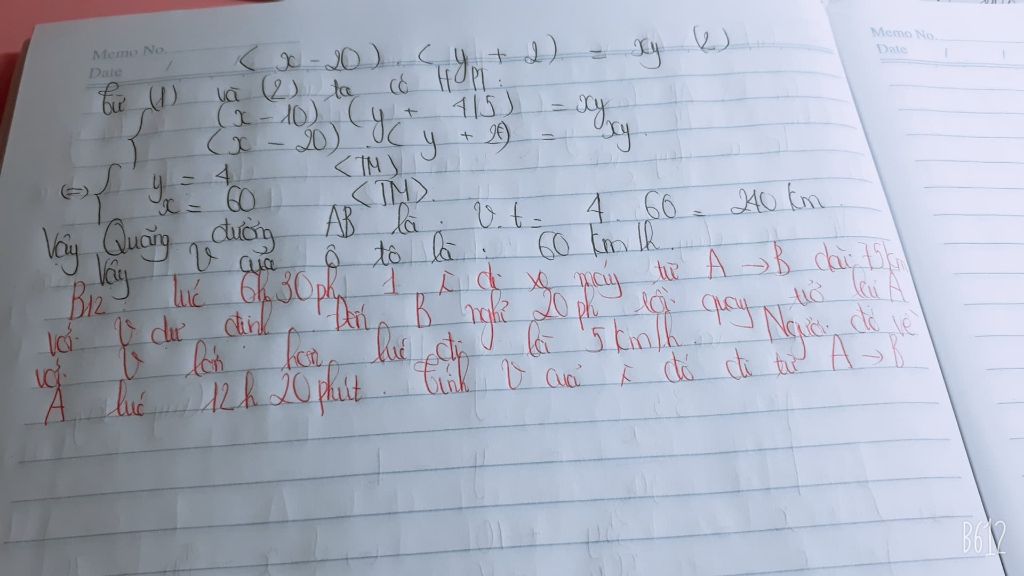 Memo No.
Date / /
Memo No.
Date / /
(x - 20) . (y + 2) = xy (2)
Từ (1) và (2) ta có HPT:
(x - 10) (y + 4/5) = xy
(x - 20) . (y + 2) = xy
<=> { y = 4 <TM>
x = 60 <TM>.
Vậy Quãng đường AB là: v.t = 4 . 60 = 240 km
Vậy V của ô tô là: 60 km/h.
B12. lúc 6h30ph 1 x đi xe máy từ A → B dài 75km
với V dự định. Đến B nghỉ 20ph rồi quay trở lại A
với V lớn hơn lúc đi là 5km/h. Người đó về
A lúc 12h 20phút. Tính V của x đó đi từ A → B
B612